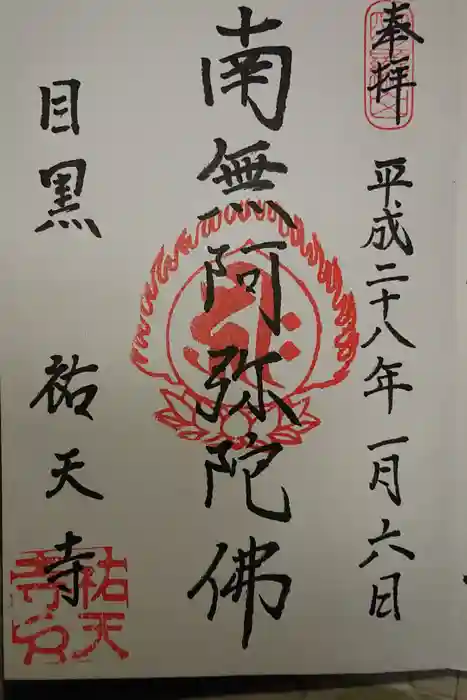 奉拜
平成二十八年一月六日
南無阿弥陀佛
目黒 祐天寺
祐天寺